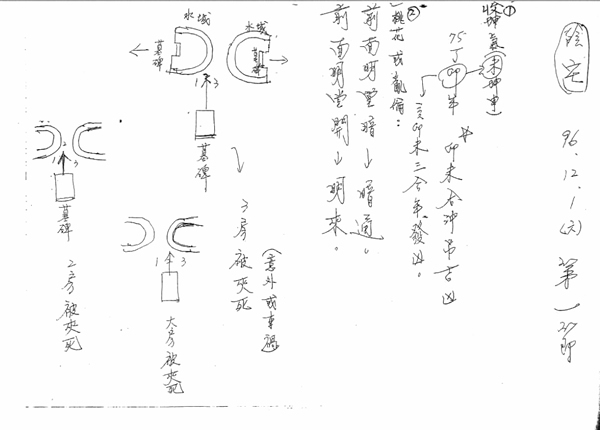 陰宅
96.12.1(六) 第一節
①
收坤氣(未坤申)
75 丁卯年 → 卯未合沖吊吉凶
→ 亥卯未三合年發凶。
②
(桃花或亂倫:
前面明堂暗→暗通。
前面明堂開→明來。
水城
水城
墓碑
墓碑
1 3
墓碑
3房被夾死
(意外或車禍)
1 2 3
墓碑
2房被夾死
1 3
大房被夾死